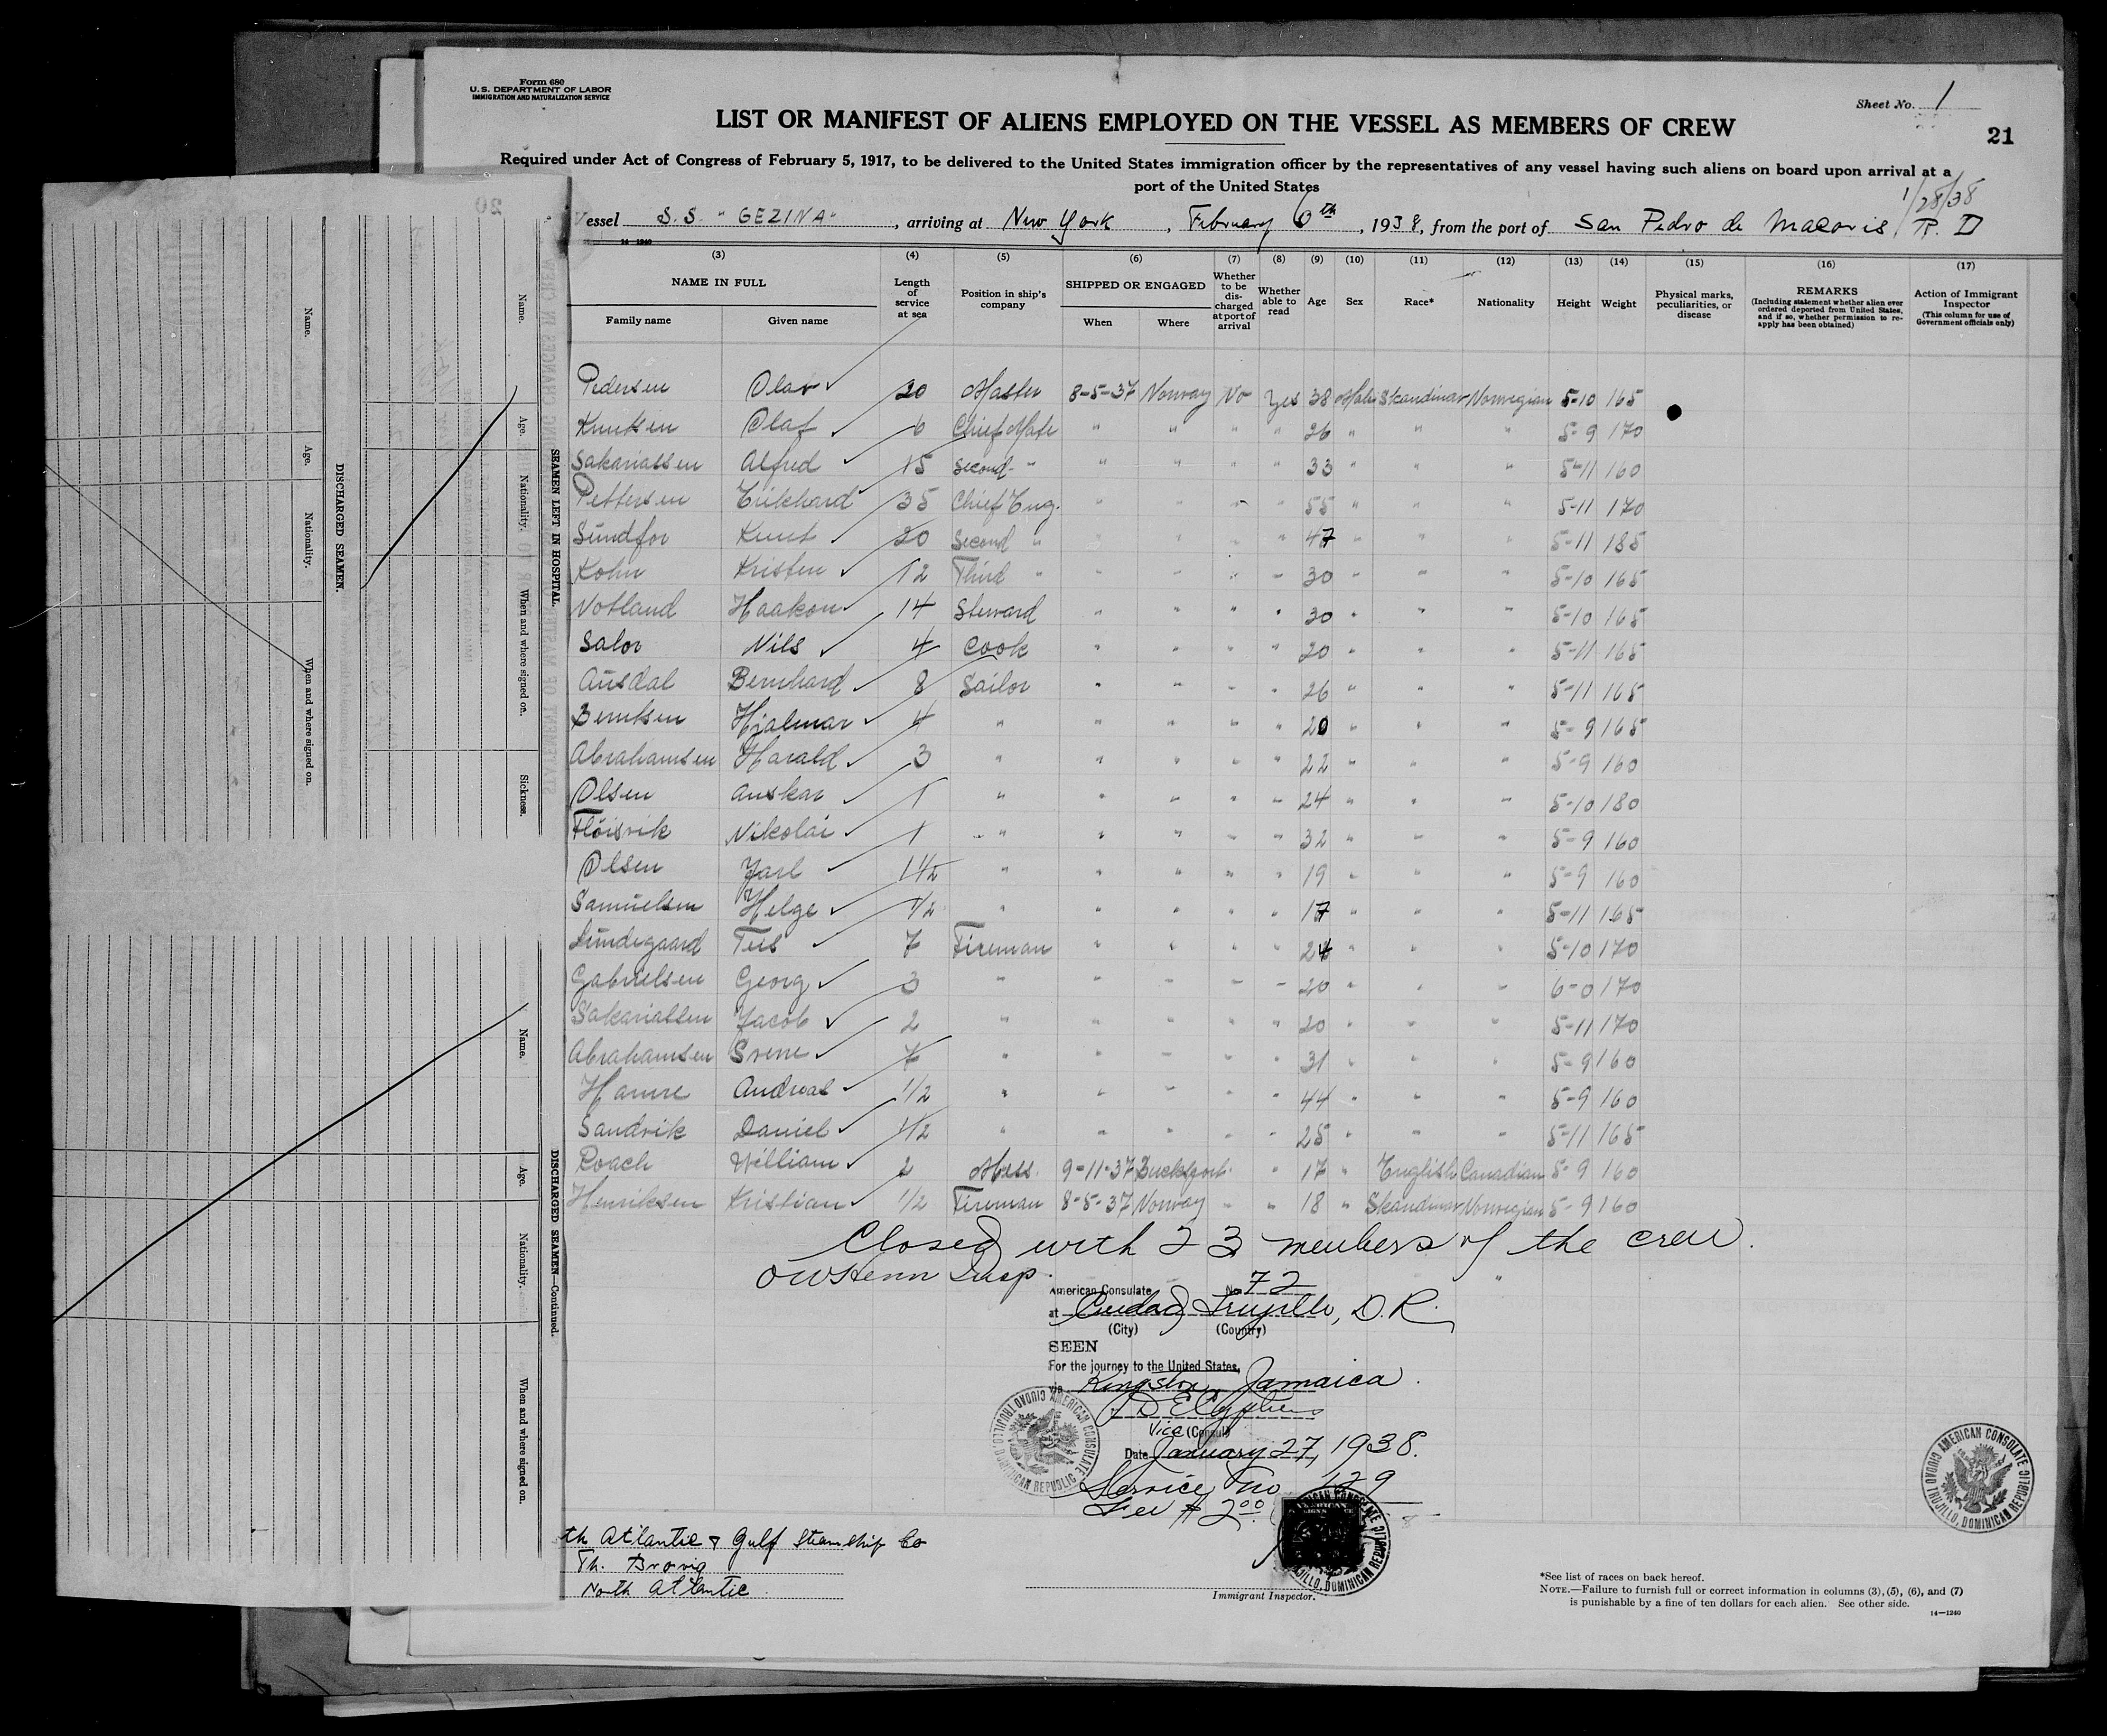 Form 680
U.S. DEPARTMENT OF LABOR
IMMIGRATION AND NATURALIZATION SERVICE
Sheet No. 1
21
LIST OR MANIFEST OF ALIENS EMPLOYED ON THE VESSEL AS MEMBERS OF CREW
Required under Act of Congress of February 5, 1917, to be delivered to the United States immigration officer by the representatives of any vessel having such aliens on board upon arrival at a
port of the United States
1/28/38
Vessel S.S. "GEZINA", arriving at New York, February 6th, 1938, from the port of San Pedro de Macoris, R. D
14—1240
(3) (4) (5) (6) (7) (8) (9) (10) (11) (12) (13) (14) (15) (16) (17)
NAME IN FULL
Family name Given name
Length of service at sea
Position in ship's company
SHIPPED OR ENGAGED
When Where
Whether to be discharged at port of arrival
Whether able to read
Age
Sex
Race*
Nationality
Height
Weight
Physical marks, peculiarities, or disease
REMARKS
(Including statement whether alien ever ordered deported from United States, and if so, whether permission to reapply has been obtained)
Action of Immigrant Inspector
(This column for use of Government officials only)
Pedersen Olav 20 Master 8-5-37 Norway No Yes 38 Male Skandinav Norwegian 5-10 165
Knutsen Olaf 6 Chief Mate " " " " 26 " " " 5-9 170
Sakariassen Alfred 15 Second " " " " " 33 " " " 5-11 160
Pettersen 35 Chief Eng. " " " " 55 " " " 5-11 170
Sündfor Knut 20 Second " " " " " 47 " " " 5-11 185
Kohn Kristen 12 Third " " " " " 30 " " " 5-10 165
Notland Haakon 14 Steward " " " " 30 " " " 5-10 165
Salor Nils 4 Cook " " " " 20 " " " 5-11 165
Aüsdal Bernhard 8 Sailor " " " " 26 " " " 5-11 165
Berntsen Hjalmar 4 " " " " " 20 " " " 5-9 165
Abrahamsen Harald 3 " " " " " 22 " " " 5-9 160
Olsen Anskar 1 " " " " " 24 " " " 5-10 180
Flöisvik Nikolai 1 " " " " " 32 " " " 5-9 160
Olsen Jarl 1 1/2 " " " " " 19 " " " 5-9 160
Samüelsen Helge 1/2 " " " " " 17 " " " 5-11 165
Lündegaard Teis 7 Fireman " " " " 24 " " " 5-10 170
Gabrielsen Georg 3 " " " " " 20 " " " 6-0 170
Sakariassen Jacob 2 " " " " " 20 " " " 5-11 170
Abrahamsen Sverre 7 " " " " " 31 " " " 5-9 160
Hamre Andreas 1/2 " " " " " 44 " " " 5-9 160
Sandvik Daniel 1/2 " " " " " 25 " " " 5-11 165
Roach William 2 Mess. 9-11-37 Bucksport " " 17 " English Canadian 5-9 160
Henriksen Kristian 1/2 Fireman 8-5-37 Norway " " 18 " Skandinav Norwegian 5-9 160
Closed with 23 members of the crew.
American Consulate No 72
at Ciudad Trujillo, D.R.
(City) (Country)
SEEN
For the journey to the United States,
via Kingston, Jamaica.
Vice (Consul)
Date January 27, 1938.
Service No 129
Fee $2.00
AMERICAN CONSULATE CIUDAD TRUJILLO, DOMINICAN REPUBLIC
AMERICAN CONSULATE CIUDAD TRUJILLO, DOMINICAN REPUBLIC
AMERICAN CONSULATE TRUJILLO, DOMINICAN REPUBLIC
th Atlantic & Gulf Steamship Co
Th. Brovig
North Atlantic
Immigrant Inspector.
*See list of races on back hereof.
NOTE.—Failure to furnish full or correct information in columns (3), (5), (6), and (7)
is punishable by a fine of ten dollars for each alien. See other side.
14—1240
20
SEAMEN LEFT IN HOSPITAL.
Name. Age. Nationality. When and where signed on. Sickness.
DISCHARGED SEAMEN.
Name. Age. Nationality. When and where signed on.
DISCHARGED SEAMEN—Continued.
Name. Age. Nationality. When and where signed on.